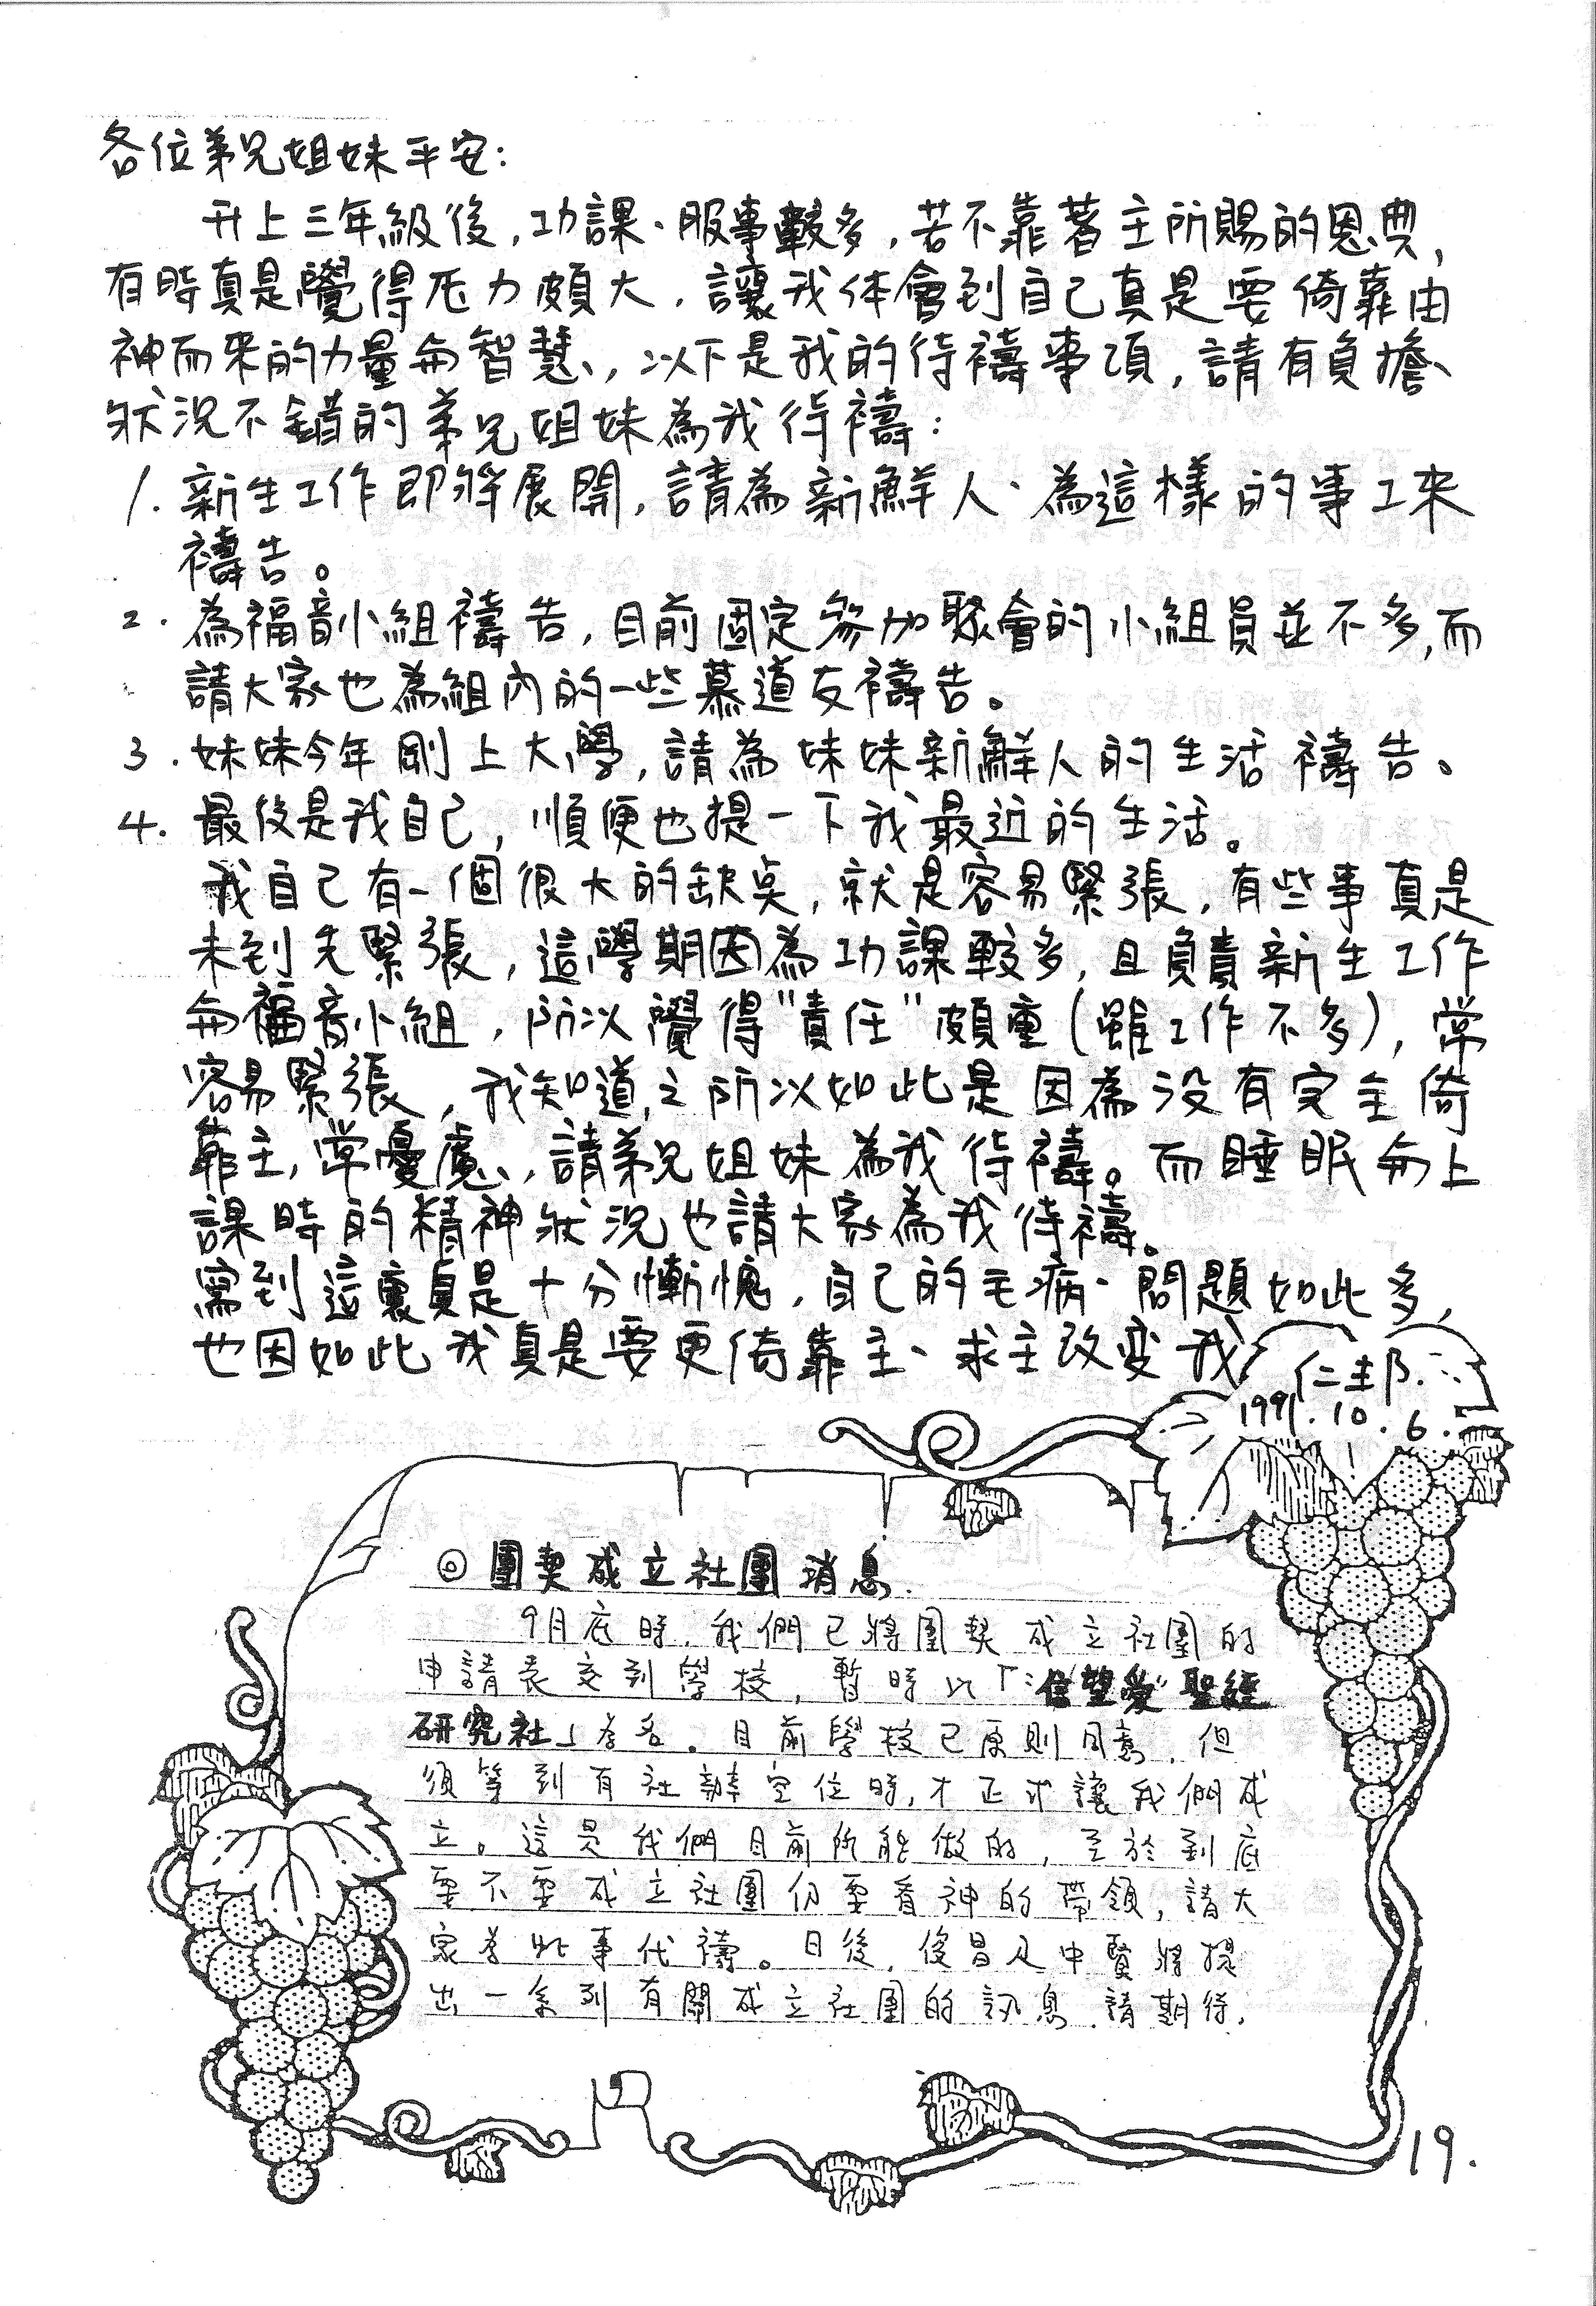 各位弟兄姐妹平安:
升上三年級後,功課、服事較多,若不靠著主所賜的恩典,
有時真是覺得压力頗大,讓我体會到自己真是要倚靠由
神而來的力量與智慧,以下是我的待禱事項,請有負擔、
狀況不錯的弟兄姐妹為我待禱:
1. 新生工作即將展開,請為新鮮人、為這樣的事工來
禱告。
2. 為福音小組禱告,目前固定參加聚會的小組員並不多,而
請大家也為組內的一些慕道友禱告。
3. 妹妹今年剛上大學,請為妹妹新鮮人的生活禱告。
4. 最後是我自己,順便也提一下我最近的生活。
我自己有一個很大的缺點,就是容易緊張,有些事真是
未到先緊張,這學期因為功課較多,且負責新生工作
與福音小組,所以覺得"責任"頗重(雖工作不多),常
容易緊張,我知道之所以如此是因為没有完全倚
靠主,常憂慮,請弟兄姐妹為我待禱。而睡眠與上
課時的精神狀況也請大家為我待禱。
寫到這裏真是十分慚愧,自己的毛病、問題如此多,
也因如此我真是要更倚靠主、求主改变我
仁邦.
1991.10.6.
◎團契成立社團消息.
9月底時,我們已將團契成立社團的
申請表交到學校,暫時以「"信望愛"聖經
研究社」為名。目前學校已原則同意,但
須等到有社辦空位時,才正式讓我們成
立。這是我們目前所能做的,至於到底
要不要成立社團仍要看神的帶領,請大
家為此事代禱。日後,俊昌及中賢將提
出一系列有關成立社團的訊息,請期待.
19.